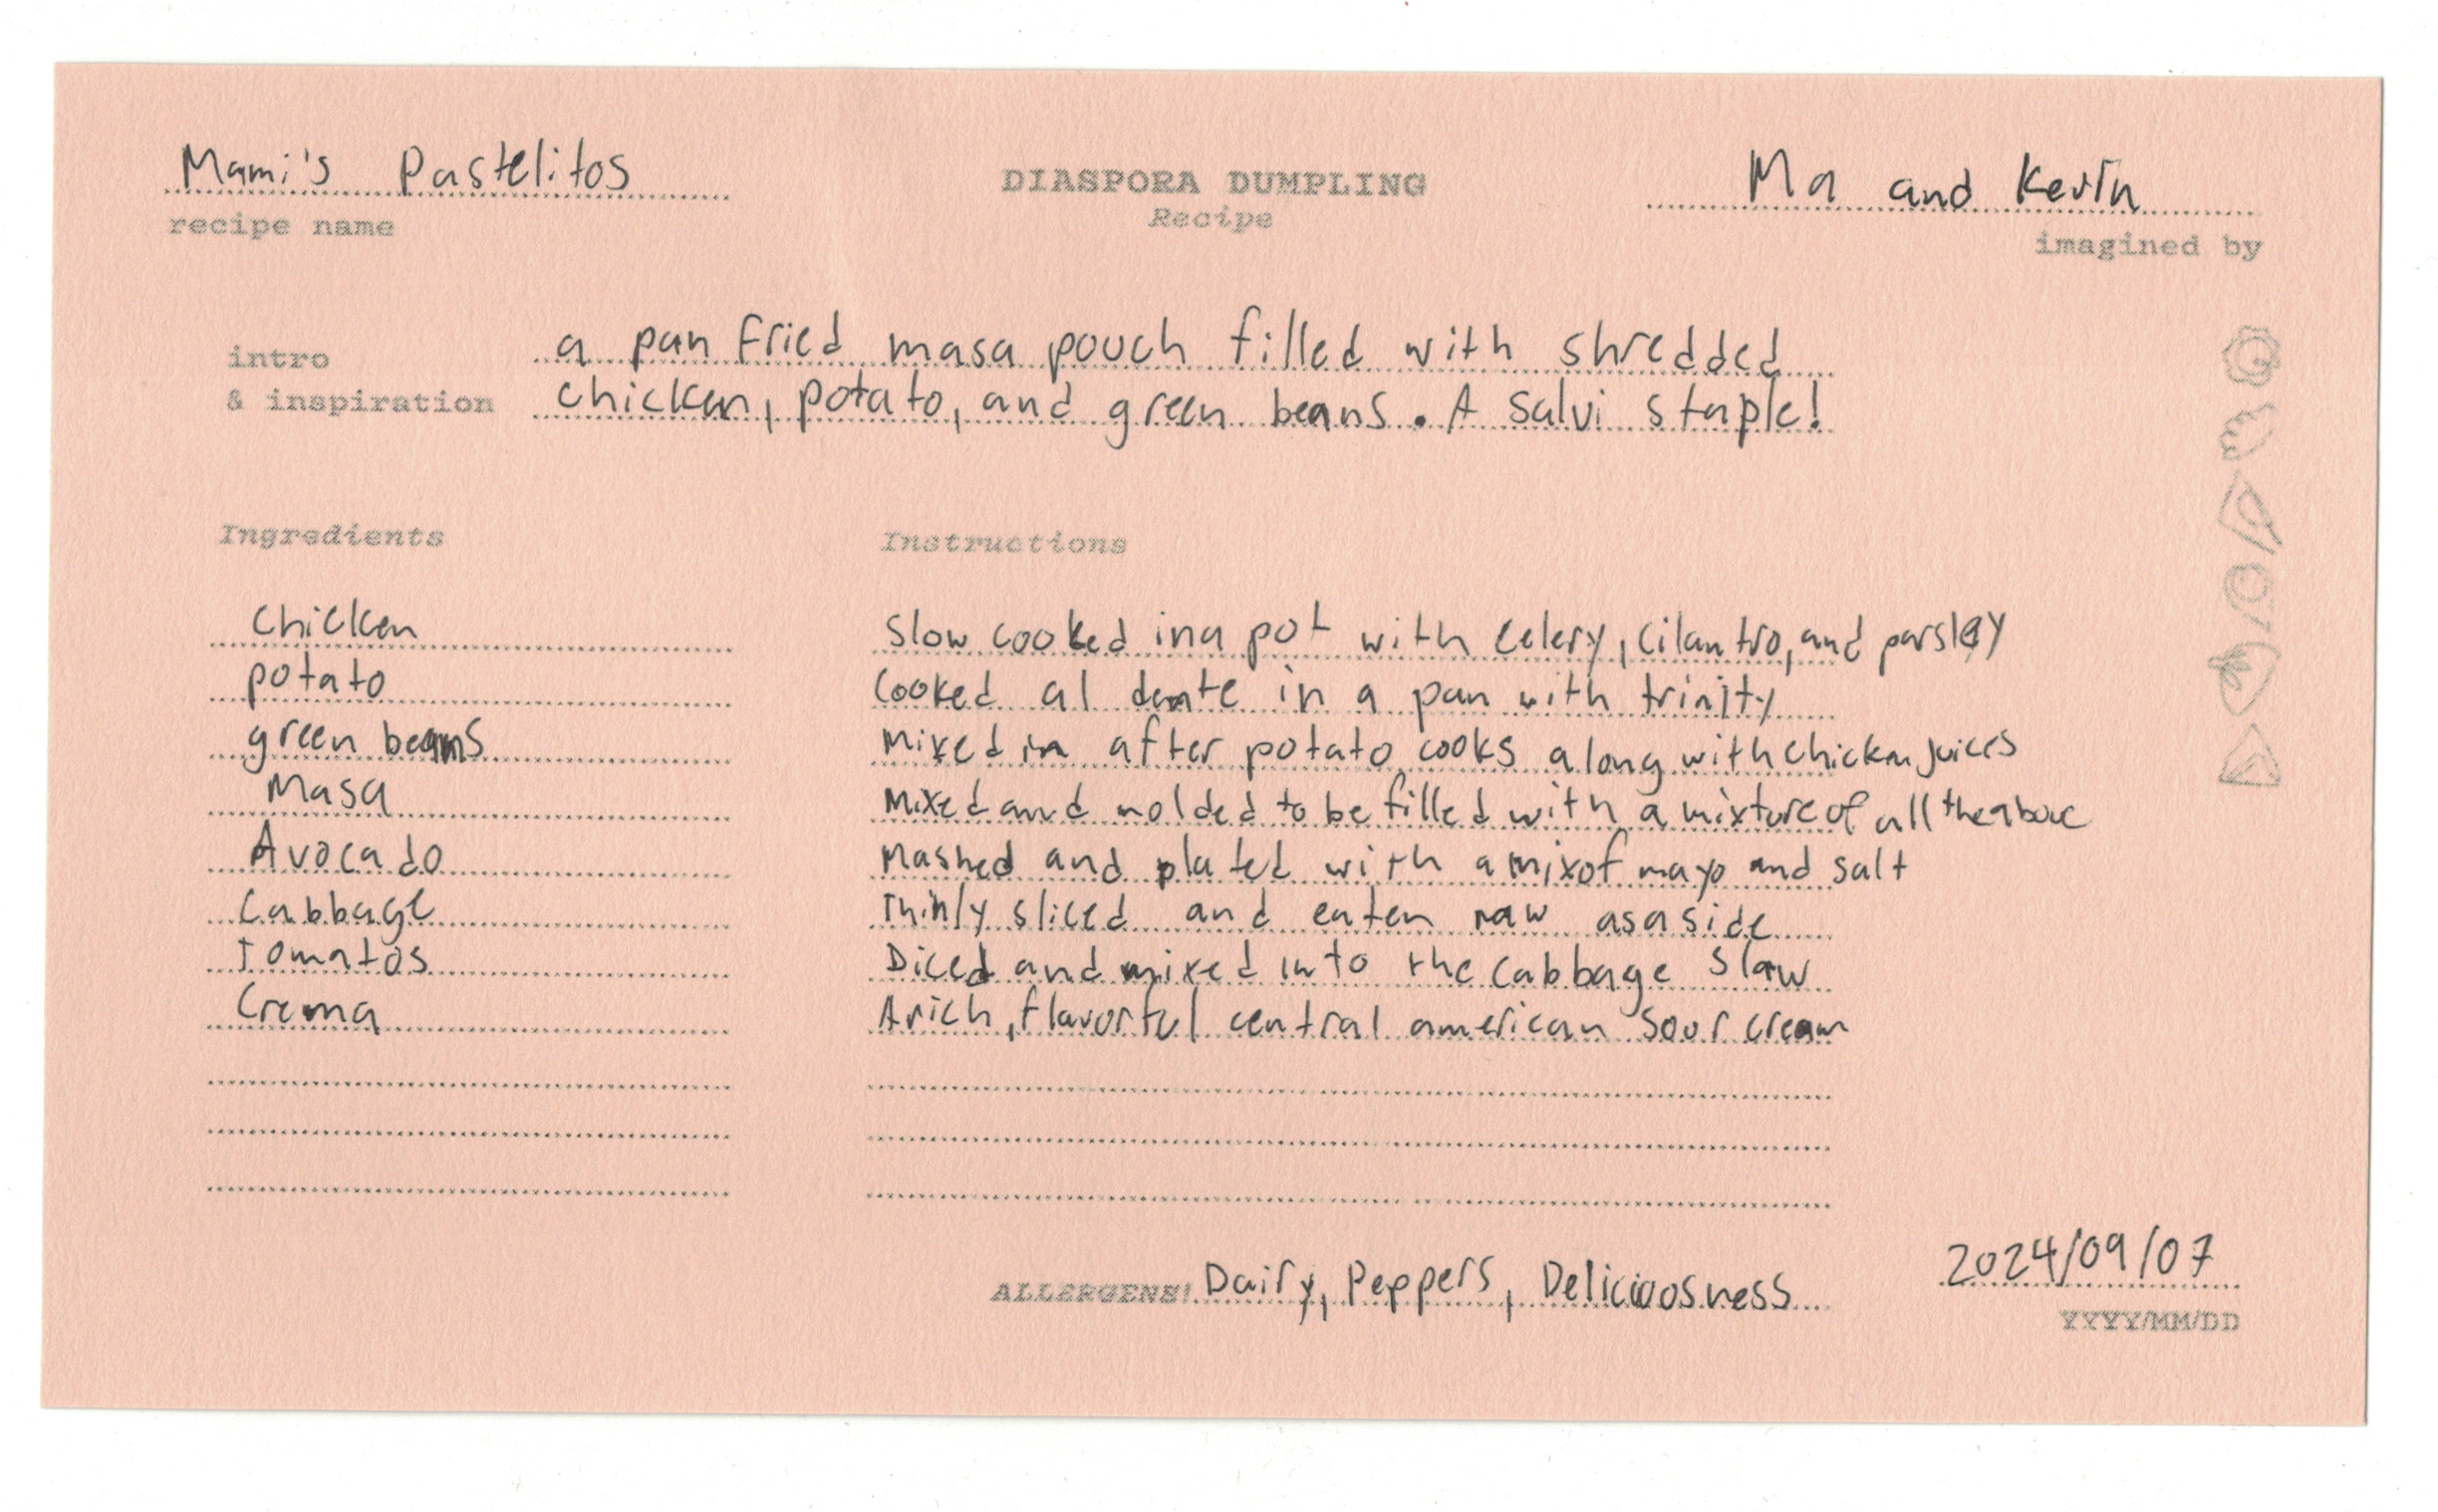 Mami's Pastelitos
recipe name
DIASPORA DUMPLING
Recipe
Ma and Kevin
imagined by
intro
& inspiration
a pan fried masa pouch filled with shredded
chicken, potato, and green beans. A Salvi staple!
Ingredients
Instructions
Chicken
Slow cooked in a pot with celery, cilantro, and parsley
potato
Cooked al dente in a pan with trinity
green beans
Mixed in after potato cooks along with chicken juices
Masa
Mixed and molded to be filled with a mixture of all the above
Avocado
Mashed and plated with a mix of mayo and salt
Cabbage
Thinly sliced and eaten raw as a side
Tomatos
Diced and mixed into the cabbage slaw
Crema
A rich, flavorful central american sour cream
ALLERGENS! Dairy, Peppers, Deliciousness
2024/09/07
YYYY/MM/DD